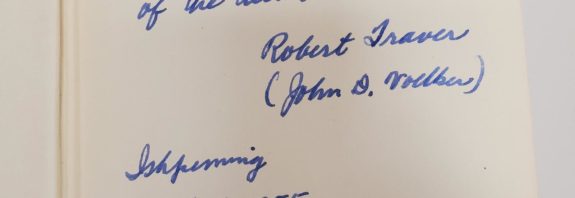 of the
Robert Traver
(John D. Voelker)
Ishpeming